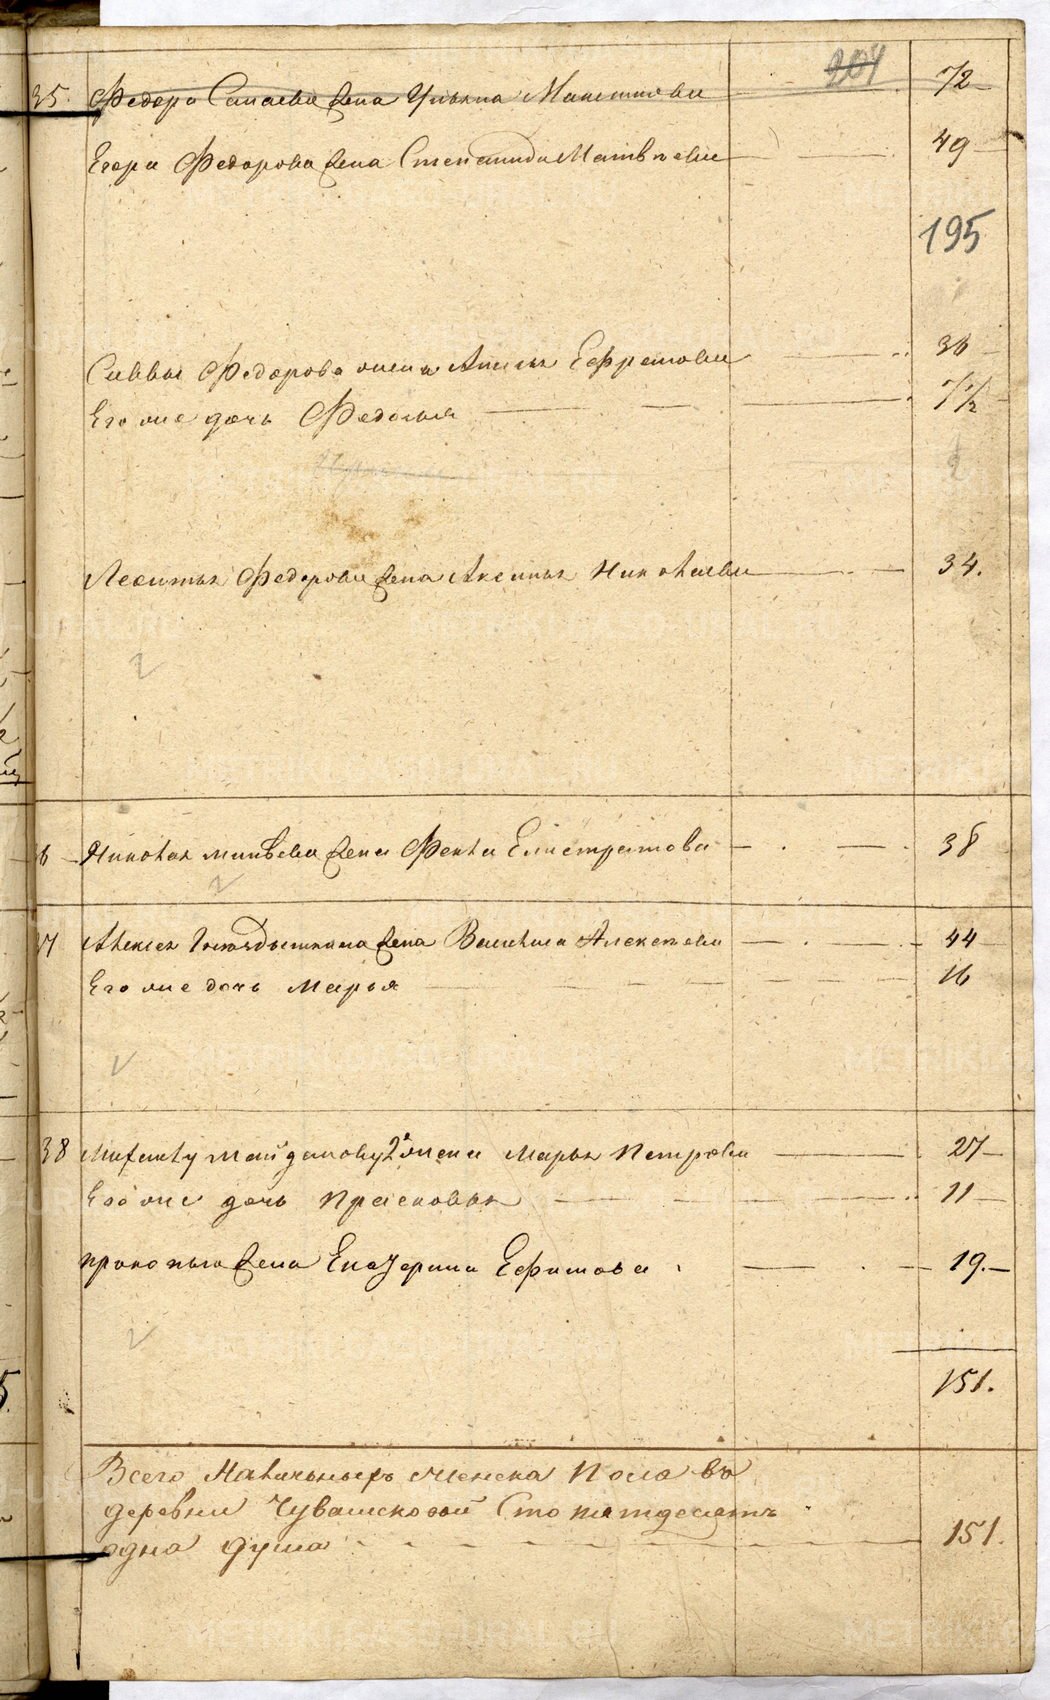 204
35. Федора Савлева жена Ульяна Макетнова 72
Егора Федорова жена Степанида Матвѣева 49
195
Саввы Федорова жена Анисья Ефремова 36
Его же дочь Федосья 7 1/2
Леонтья Федорова жена Аксинья Николаева 34.
6 Николая жена Фекла Елистратова 38
37 Алексея жена Василиса Алексеева 44
Его же дочь Марья 16
38 жена Марья Петрова 27
Его же дочь Прасковья 11
Прокопья жена Екатерина Ефимова 19.
151.
Всего Наличныхъ женска Пола въ
деревни Чувашсковой Сто пятдесятъ
одна душа 151.